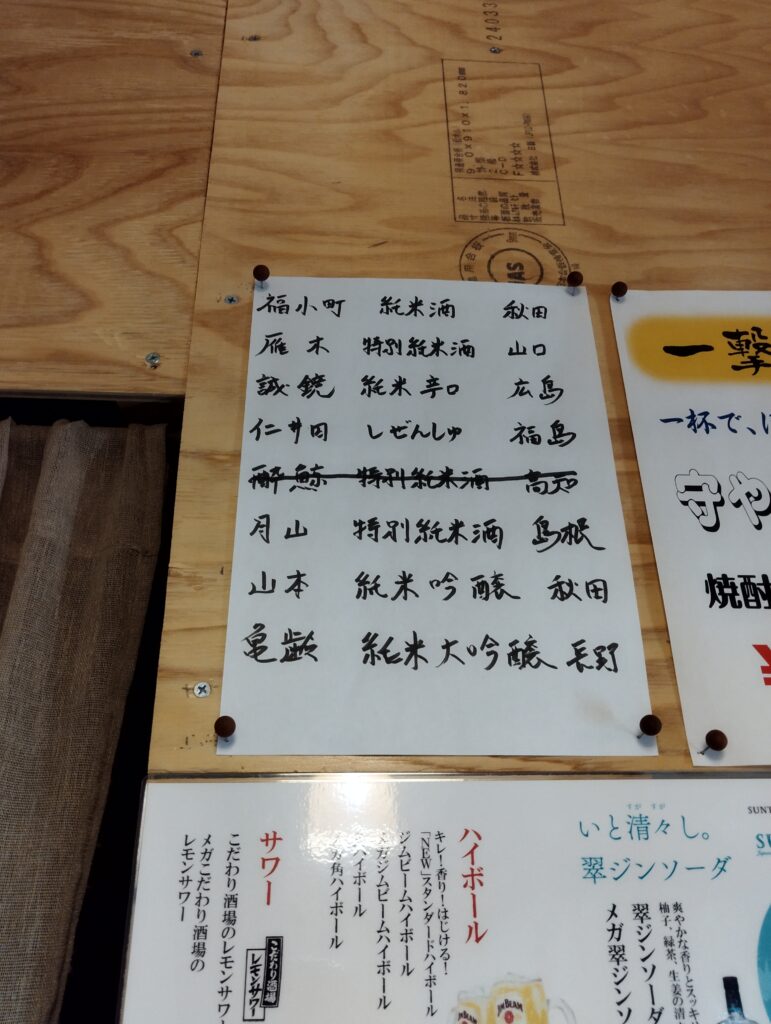 24033
福小町 純米酒 秋田
雁木 特別純米酒 山口
誠鏡 純米辛口 広島
仁井田 しぜんしゅ 福島
酔鯨 特別純米酒 高知
月山 特別純米酒 島根
山本 純米吟醸 秋田
亀齢 純米大吟醸 長野
一撃
一杯で、
守や
焼酎
ハイボール
キレ!香り!はじける!
「NEW」スタンダードハイボール
ジムビームハイボール
メガジムビームハイボール
角ハイボール
サワー
こだわり酒場のレモンサワー
メガこだわり酒場の
レモンサワー
こだわり酒場
レモンサワー
JIM BEAM
すが すが
いと清々し。
翠ジンソーダ
爽やかな香りとスッキ
柚子、緑茶、生姜の清
翠ジンソーダ
メガ翠ジンソ
SUNT